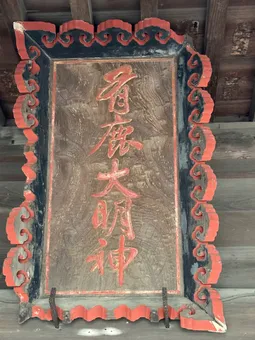 首鹿大明神